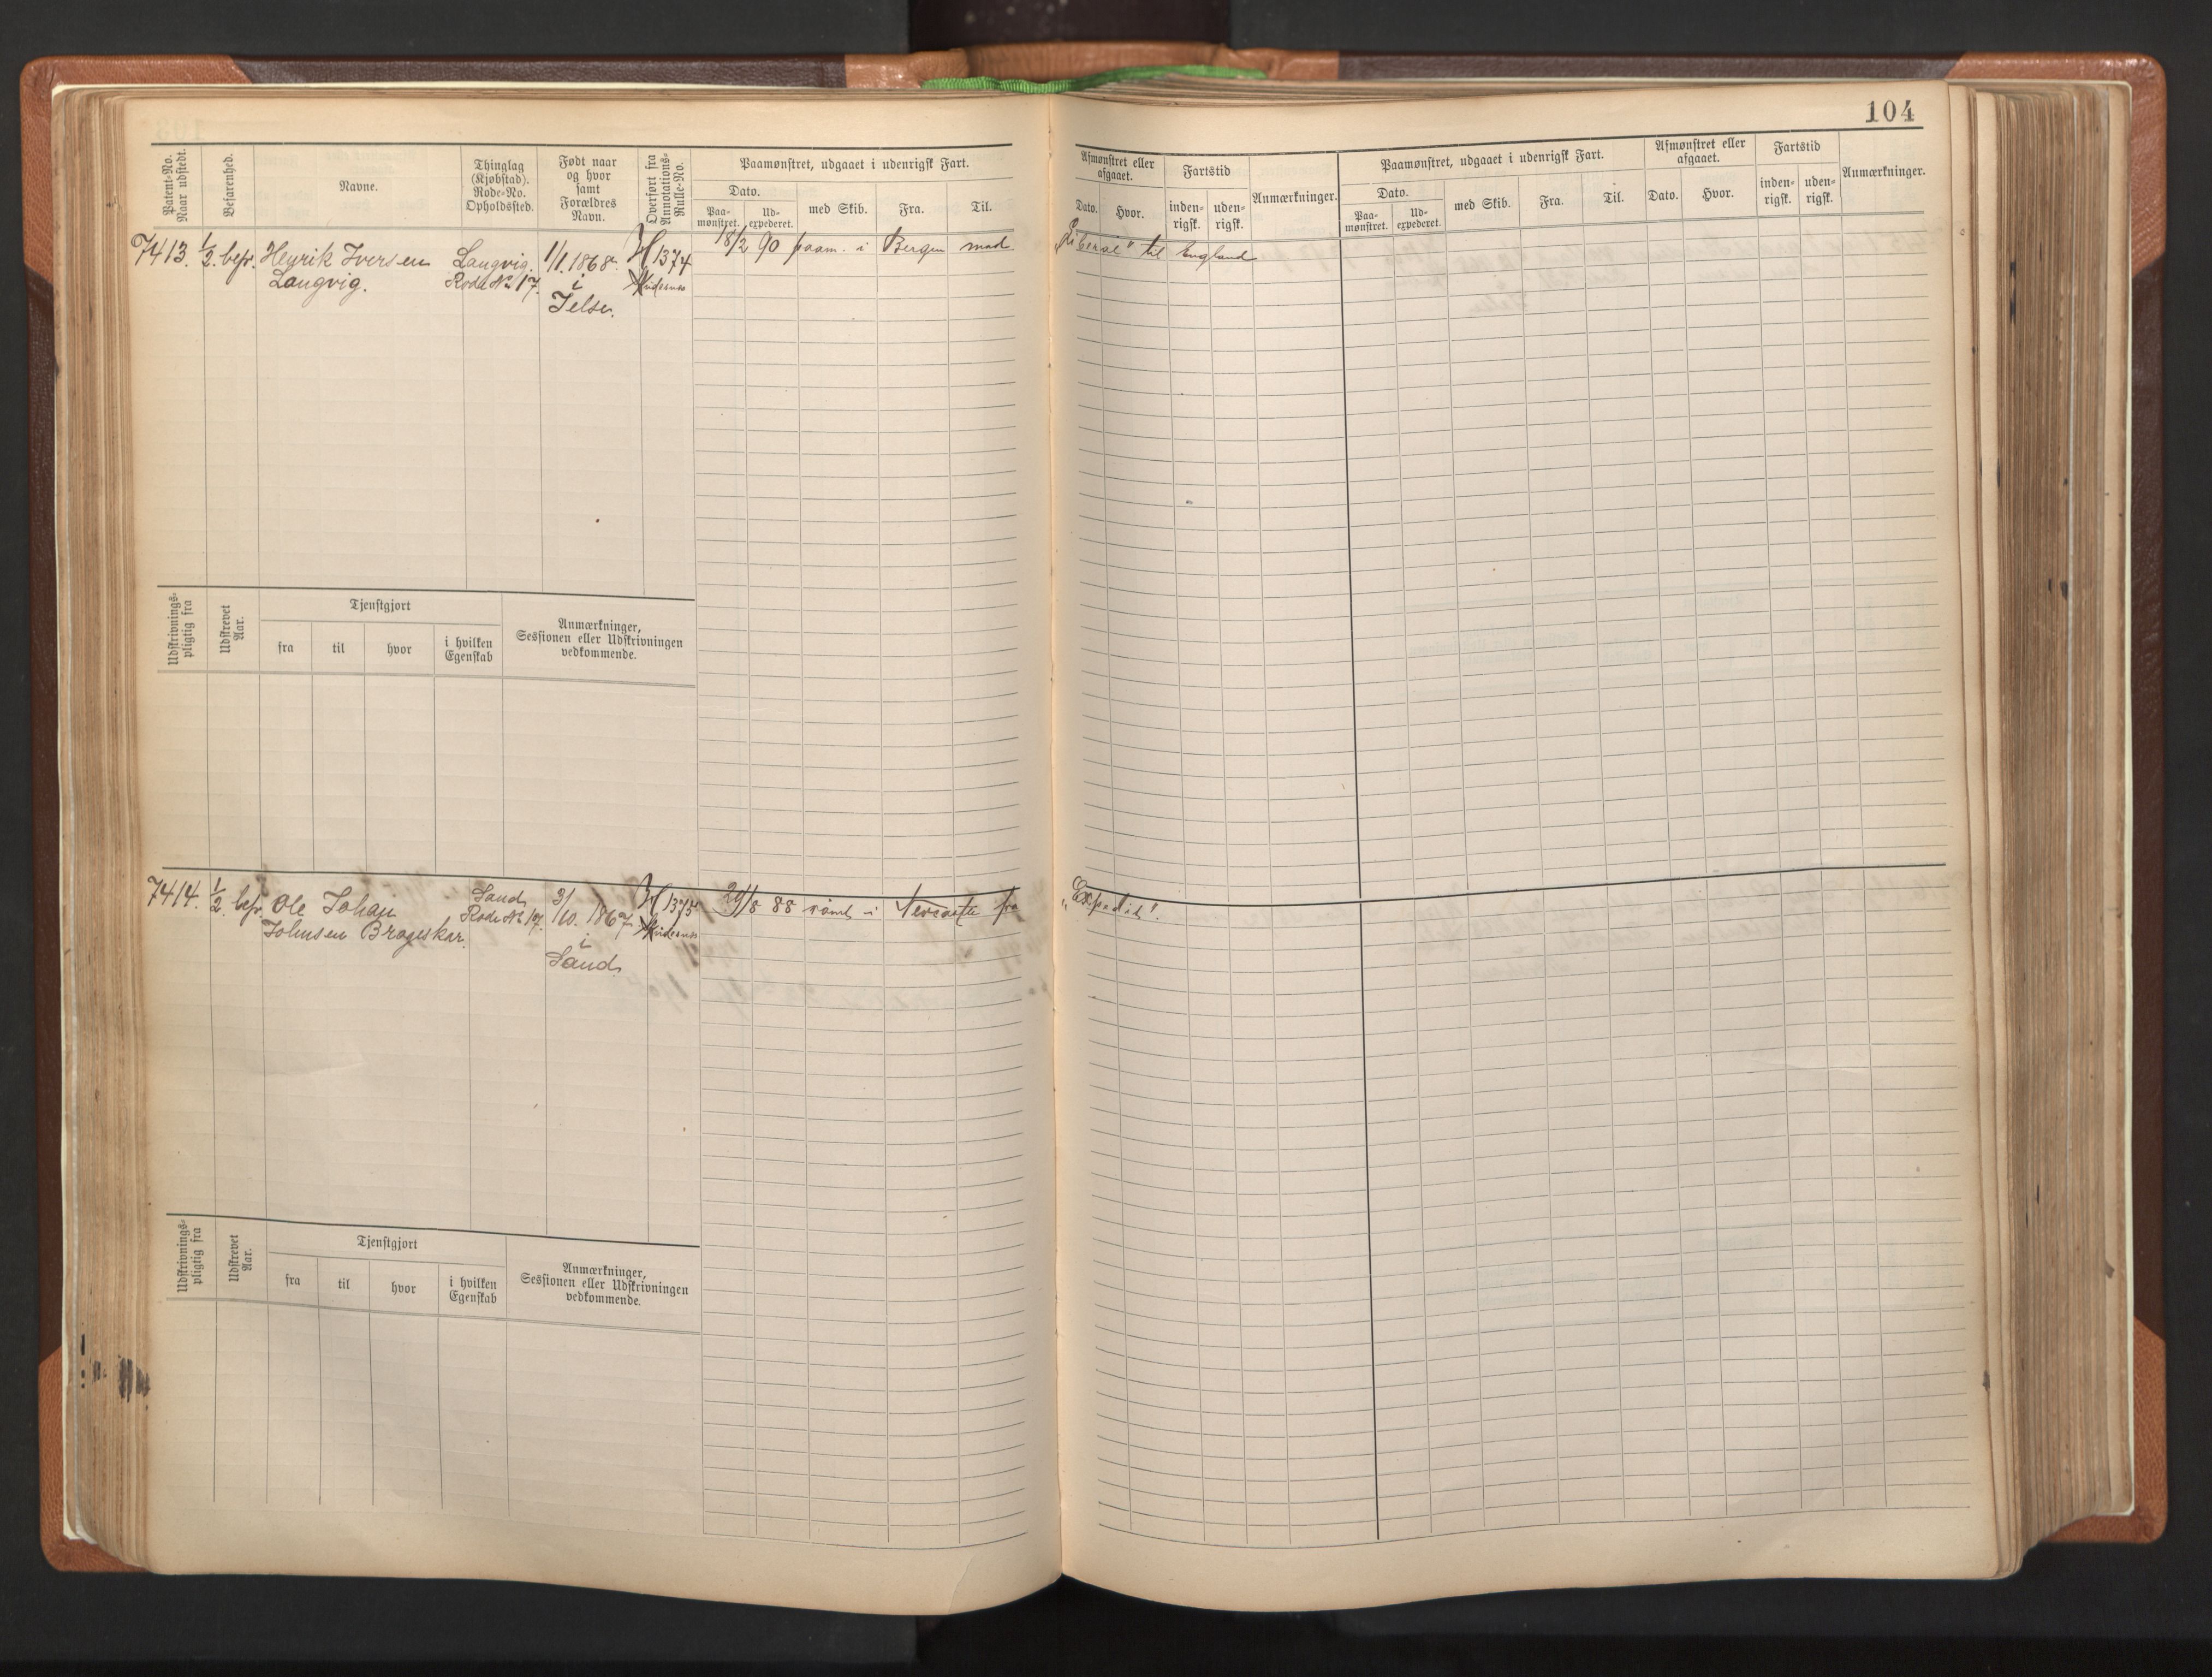 104
Patent-No. Naar udstedt.
Befarenhed.
Navne.
Thinglag (Kjøbstad). Rode-No. Opholdssted.
Født naar og hvor samt Forældres Navn.
Overført fra Annotations-Rulle-No.
Paamønstret, udgaaet i udenrigsk Fart.
Dato.
Paa-mønstret.
Ud-expederet.
med Skib.
Fra.
Til.
Afmønstret eller afgaaet.
Dato.
Hvor.
Fartstid
inden-rigsk.
uden-rigsk.
Anmærkninger.
Paamønstret, udgaaet i udenrigsk Fart.
Dato.
Paa-mønstret.
Ud-expederet.
med Skib.
Fra.
Til.
Afmønstret eller afgaaet.
Dato.
Hvor.
Fartstid
inden-rigsk.
uden-rigsk.
Anmærkninger.
7413. 1/2 bef. Henrik Iversen Langvig. 1/1. 1868 1374 18/2 90 paam. i Bergen med "Liberal" til England
Langvig. Rode No 17. i Skudesnes
Jelse.
Udskrivnings-pligtig fra
Udskrevet Aar.
Tjenstgjort
fra
til
hvor
i hvilken Egenskab
Anmærkninger, Sessionen eller Udskrivningen vedkommende.
7414. 1/2 bef. Ole Johan Sand 3/10. 1867 1375 29/8 88 rømt i fra "Expedit".
Johnsen Brageskar. Rode No 17. i Skudesnes
Sand
Udskrivnings-pligtig fra
Udskrevet Aar.
Tjenstgjort
fra
til
hvor
i hvilken Egenskab
Anmærkninger, Sessionen eller Udskrivningen vedkommende.